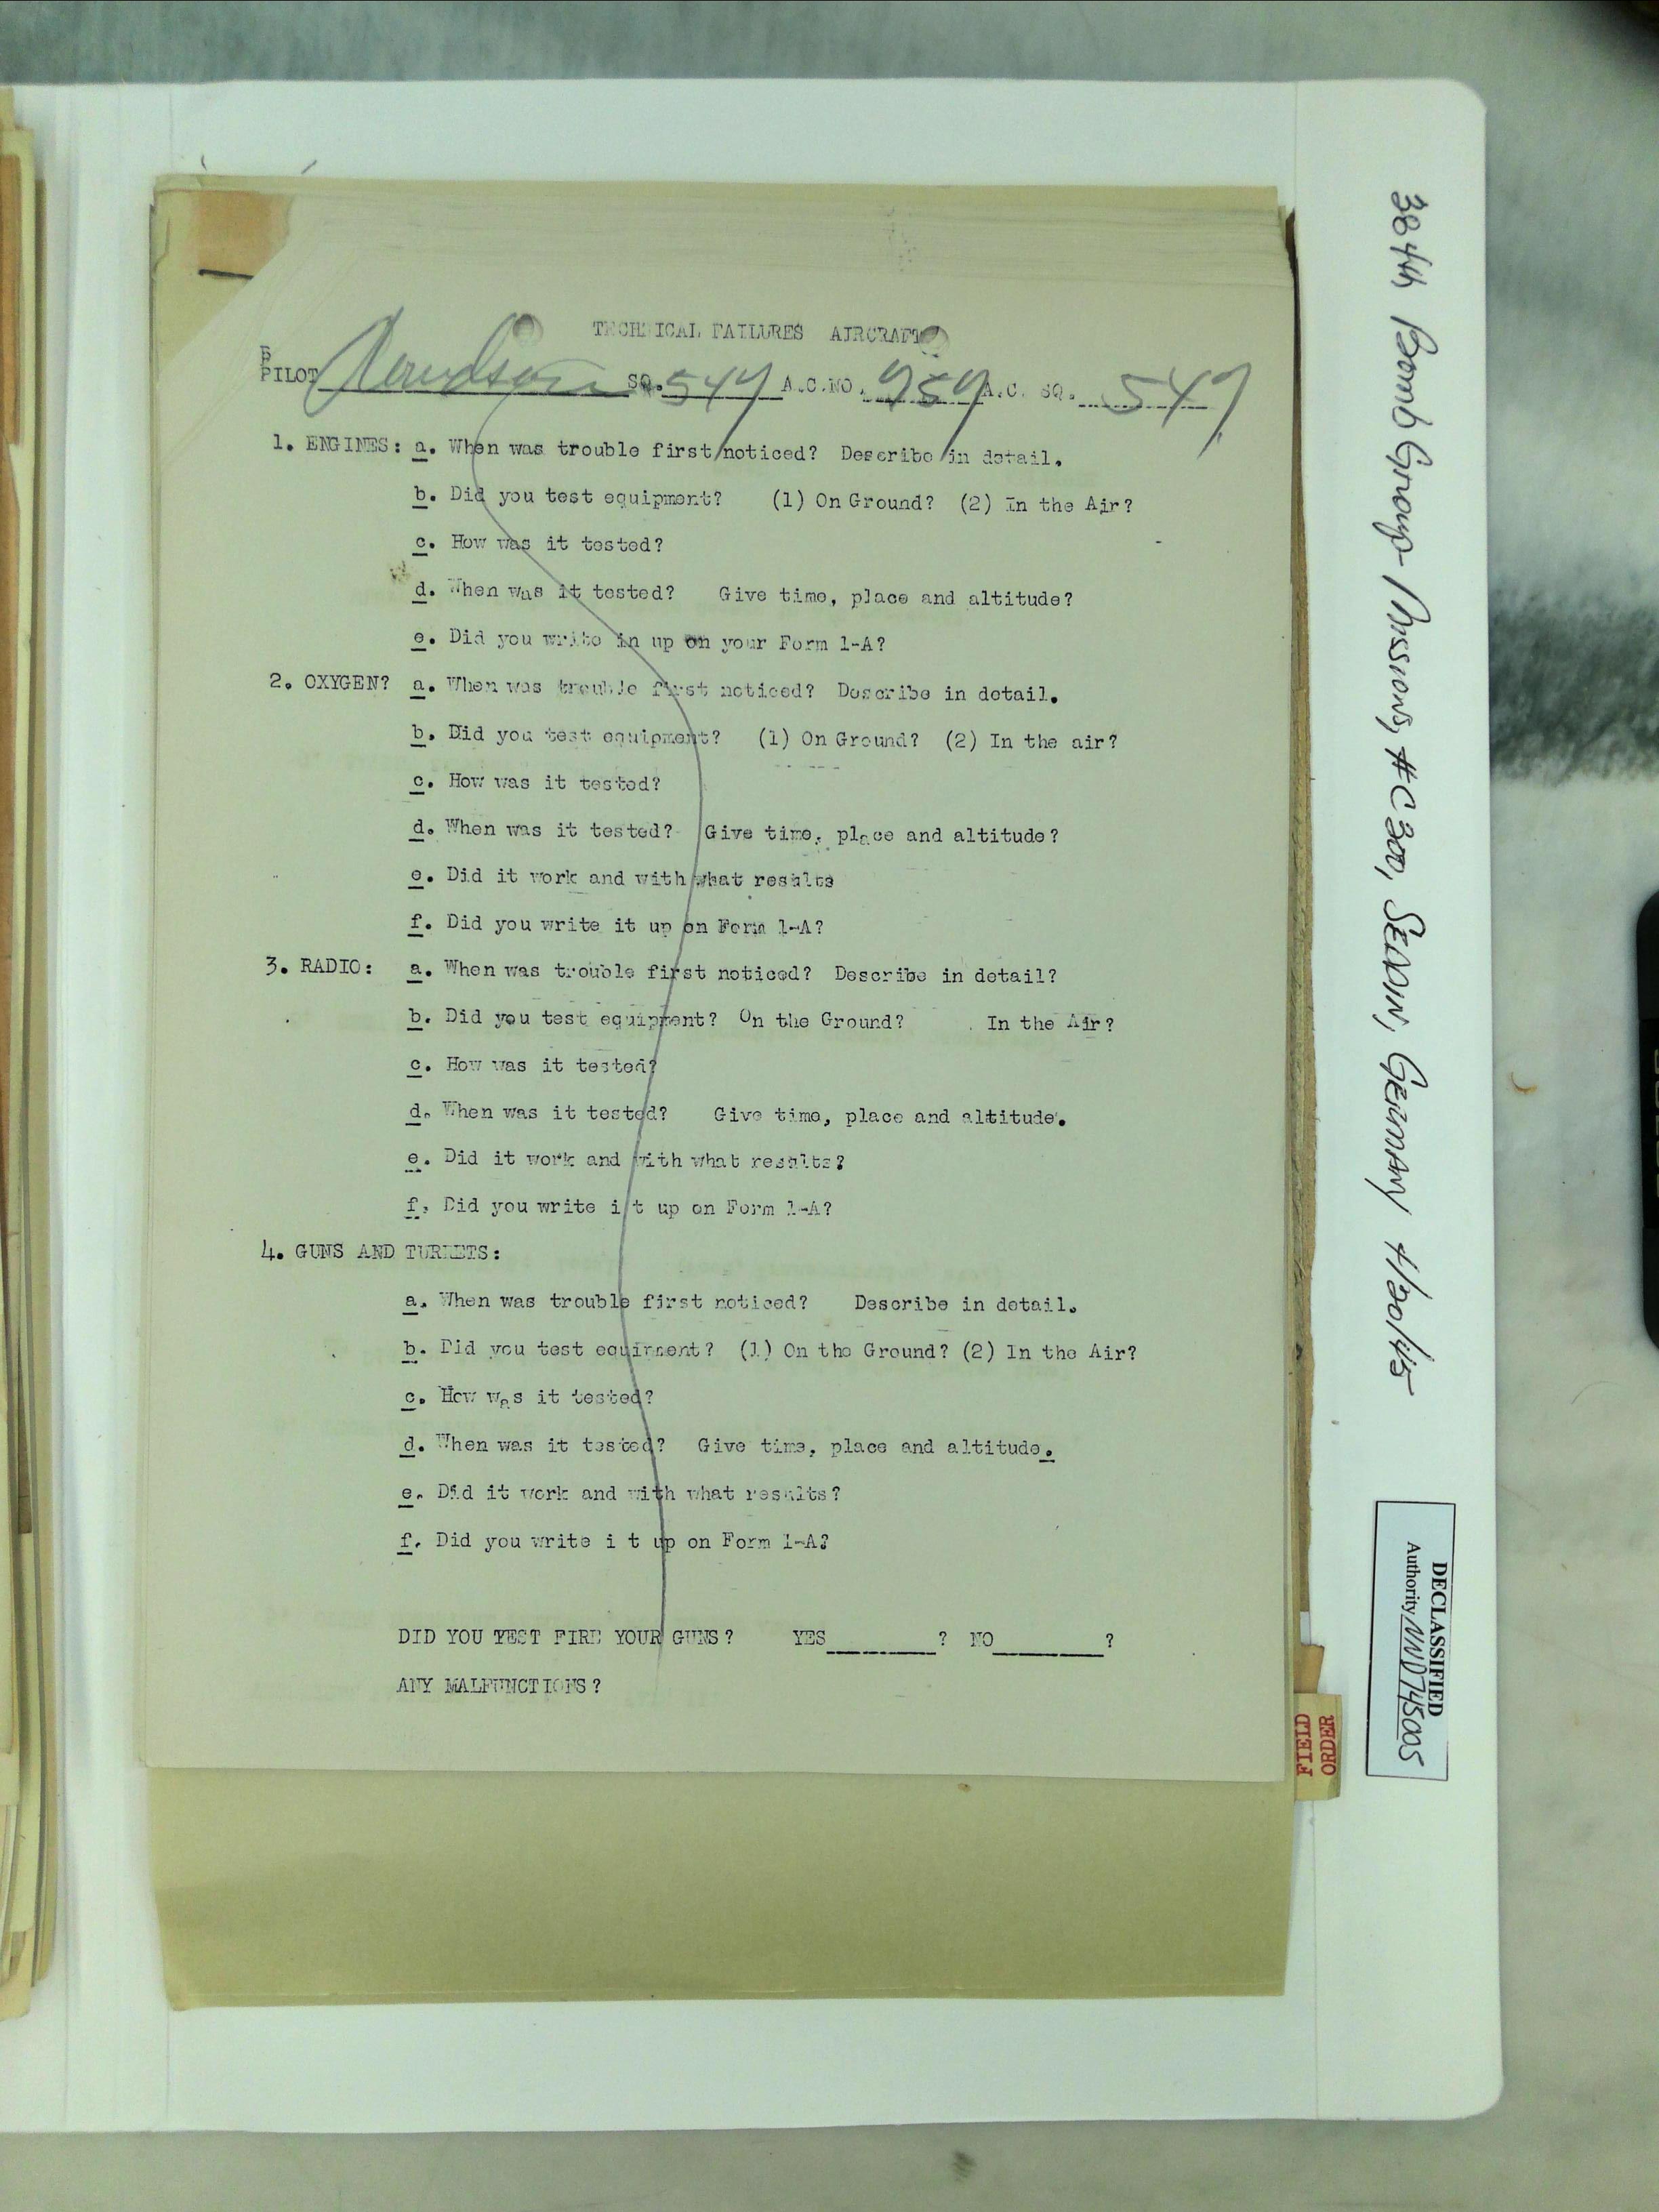 TECHNICAL FAILURES AIRCRAFT
B
PILOT SQ. 547 A.C.NO. 959 A.C. SQ. 547
1. ENGINES: a. When was trouble first noticed? Describe in detail.
b. Did you test equipment? (1) On Ground? (2) In the Air?
c. How was it tested?
d. When was it tested? Give time, place and altitude?
e. Did you write in up on your Form 1-A?
2. OXYGEN? a. When was trouble first noticed? Describe in detail.
b. Did you test equipment? (1) On Ground? (2) In the air?
c. How was it tested?
d. When was it tested? Give time, place and altitude?
e. Did it work and with what results
f. Did you write it up on Form 1-A?
3. RADIO: a. When was trouble first noticed? Describe in detail?
b. Did you test equipment? On the Ground? In the Air?
c. How was it tested?
d. When was it tested? Give time, place and altitude.
e. Did it work and with what results?
f. Did you write i t up on Form 1-A?
4. GUNS AND TURRETS:
a. When was trouble first noticed? Describe in detail.
b. Did you test equipment? (1) On the Ground? (2) In the Air?
c. How was it tested?
d. When was it tested? Give time, place and altitude.
e. Did it work and with what results?
f. Did you write i t up on Form 1-A?
DID YOU TEST FIRE YOUR GUNS? YES ? NO ?
ANY MALFUNCTIONS?
384th Bomb Group - Missions, #C 300, SEDDIN, GERMANY 4/20/45
DECLASSIFIED
Authority NND 745005
FIELD
ORDER